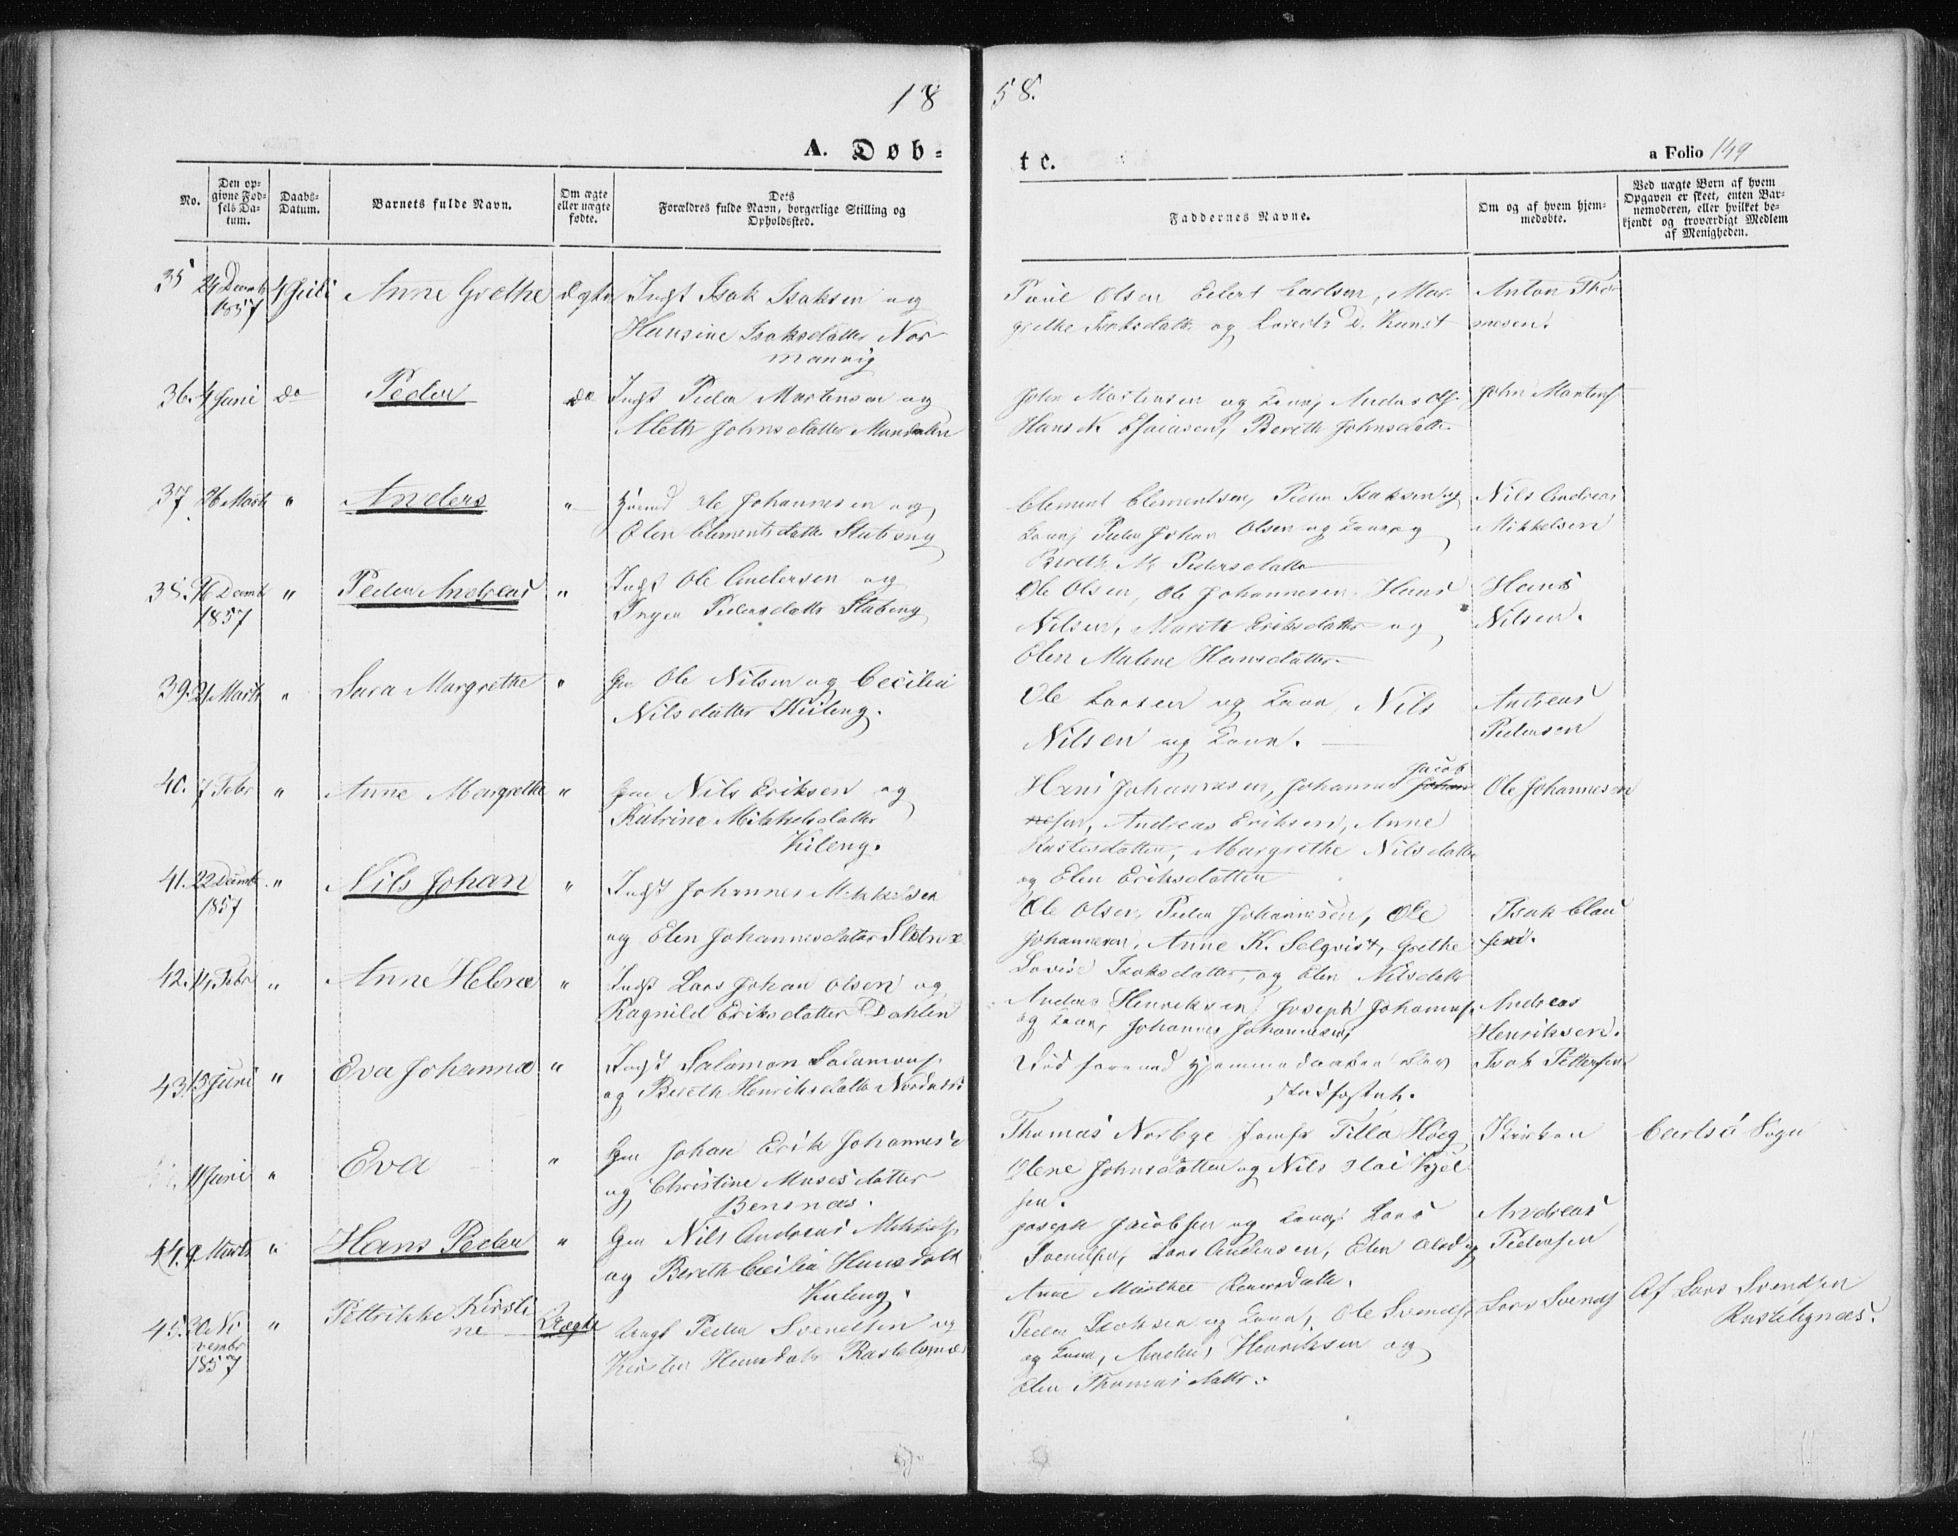 18
58.
A. Døb-
te.
a Folio 149
No.
Den op-
givne Fød-
sels Da-
tum.
Daabs-
Datum.
Barnets fulde Navn.
Om ægte
eller uægte
fødte.
Dets
Forældres fulde Navn, borgerlige Stilling og
Opholdssted.
Faddernes Navne.
Om og af hvem hjem-
medøbte.
Ved uægte Børn af hvem
Opgaven er skeet, enten Bar-
nemoderen, eller hvilket be-
kjendt og troværdigt Medlem
af Menigheden.
35 24 Decemb 1857 4 Juli Anne Grethe ægte Indst Isak Isaksen og
Hansine Isaksdatter Nor
manvig
Paul Olsen Eilert Carlsen, Mar-
grethe Isaksdatter og Lorentz D. Kunst
Anton Tho-
mesen.
36. 4 Juni do Peder do Indst Peder Mortensen og
Meth Johnsdatter Mandalen
John Mortensen og Kone, Anders Ols.
Hans N. Esaiasen, Berith Johnsdatter
John Mortens
37 26 Marts " Anders " Ole Johannesen og
Elen Clementsdatter Skatvog
Clement Clementsen, Peder Isaksen og
Kone, Peder Johan Olsen og Kone og
Bereth M. Pedersdatter
Nils Andreas
Mikkelsen
38. 16 Decemb 1857 " Peder Andreas " Indst Ole Andersen og
Inger Pedersdatter Skateng
Ole Olsen, Ole Johannesen, Hans
Nilsen, Marith Eriksdatter og
Elen Malene Hansdatter
Hans
Nilsen.
39. 21 Marts " Sara Margrethe " Gm Ole Nilsen og Cecilia
Nilsdatter Kileng.
Ole Larsen og Kone, Nils
Nilsen og Kone.
Andreas
Pedersen
40. 7 Febr " Anne Margrethe " Gm Nils Eriksen og
Katrine Mikkelsdatter
Kileng.
Hans Johannesen, Johannes Jacob
sen, Andreas Eriksen, Anne
Margrethe Nilsdatter
og Elen Eriksdatter
Ole Johannesen
41. 22 Decemb 1857 " Nils Johan " Indst Johannes Mikkelsen
og Elen Johannesdatter
Ole Olsen, Peder Johannesen, Ole
Johannesen, Anne K. Selqvist, Grethe
Lovise Isaksdatter og Elen Nilsdatter
Isak Clau
sen.
42. 14 Febr " Anne Helene " Indst Lars Johan Olsen og
Ragnild Eriksdatter Dahlen
Anders Henriksen, Joseph Johannes.
og Kone, Johannes Johannesen,
Andreas
Henriksen.
43. 15 Juni " Eva Johanna " Indst Salamon Salamons.
og Bereth Henriksdatter Nordnes
Hjemmedaaben blev
stadfæstet.
Isak Pettersen
11 Juni " Eva " Gm Johan Erik Johannes.
og Christine Mosesdatter
Bensnæs.
Thomas Norbye Jomfr Tilla Høeg
Olene Johnsdatter og Nils Kjel
sen.
Kirken
Carlsø Sogn
44. 9 Marts " Hans Peder " Gm Nils Andreas Mikkels.
og Bereth Cecilia Hansdatt
Kileng.
Joseph Jacobsen og Kone, Lars
Svendsen, Lars Andersen, Elen Olsd og
Anne Marthee
Andreas
Pedersen
45. 20 No
vembr
1857 " Petrikke Kirsti
ne Uægte Ungk Peder Svendsen og
Kirsten Hansdatr Rastebynæs
Peder Isaksen og Kone, Ole Svends.
og Kone, Anders Henriksen og
Elen Thomasdatter.
Lars Svends
Af Lars Svendsen
Rastebynæs.